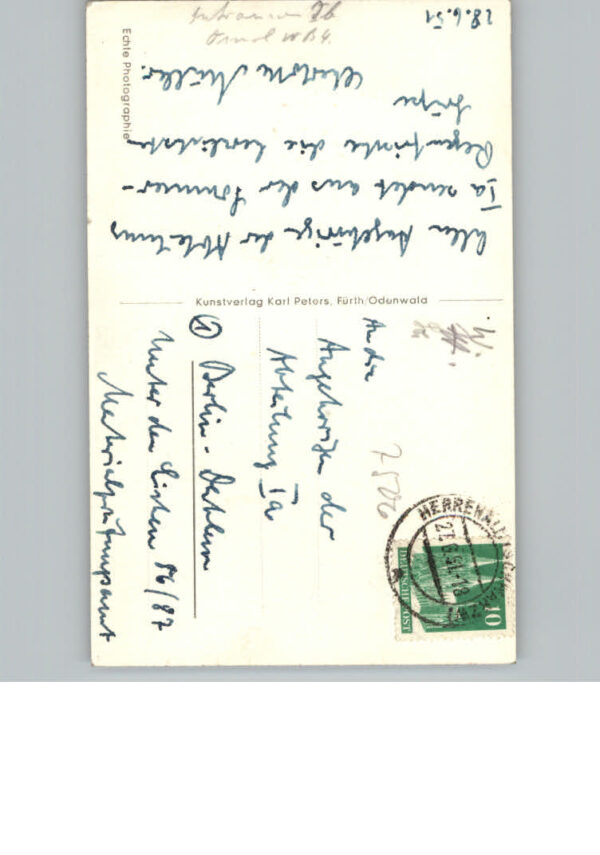 28.6.51
Allen Angehörigen der Abteilung
Ia sendet aus der Sommer-
die herzlichsten
Grüße
Müller.
Echte Photographie
Kunstverlag Karl Peters, Fürth/Odenwald
An die
Angehörigen der
Abteilung Ia
① Berlin-Dahlem
Unter den Eichen 86/87
Materialprüfungsamt
HERRENALB
10
DEUTSCHE POST